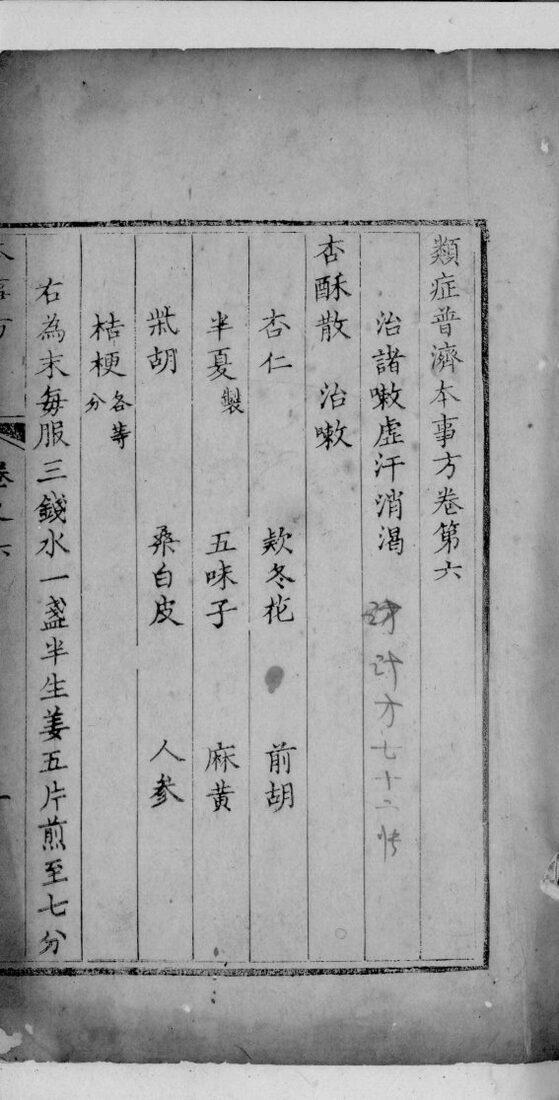 類症普濟本事方卷第六
治諸嗽虛汗消渴
計方七十二
杏酥散 治嗽
杏仁 欵冬花 前胡
半夏製 五味子 麻黄
茈胡 桑白皮 人參
桔梗各等分
右為末每服三錢水一盞半生姜五片煎至七分
本事方 卷之六